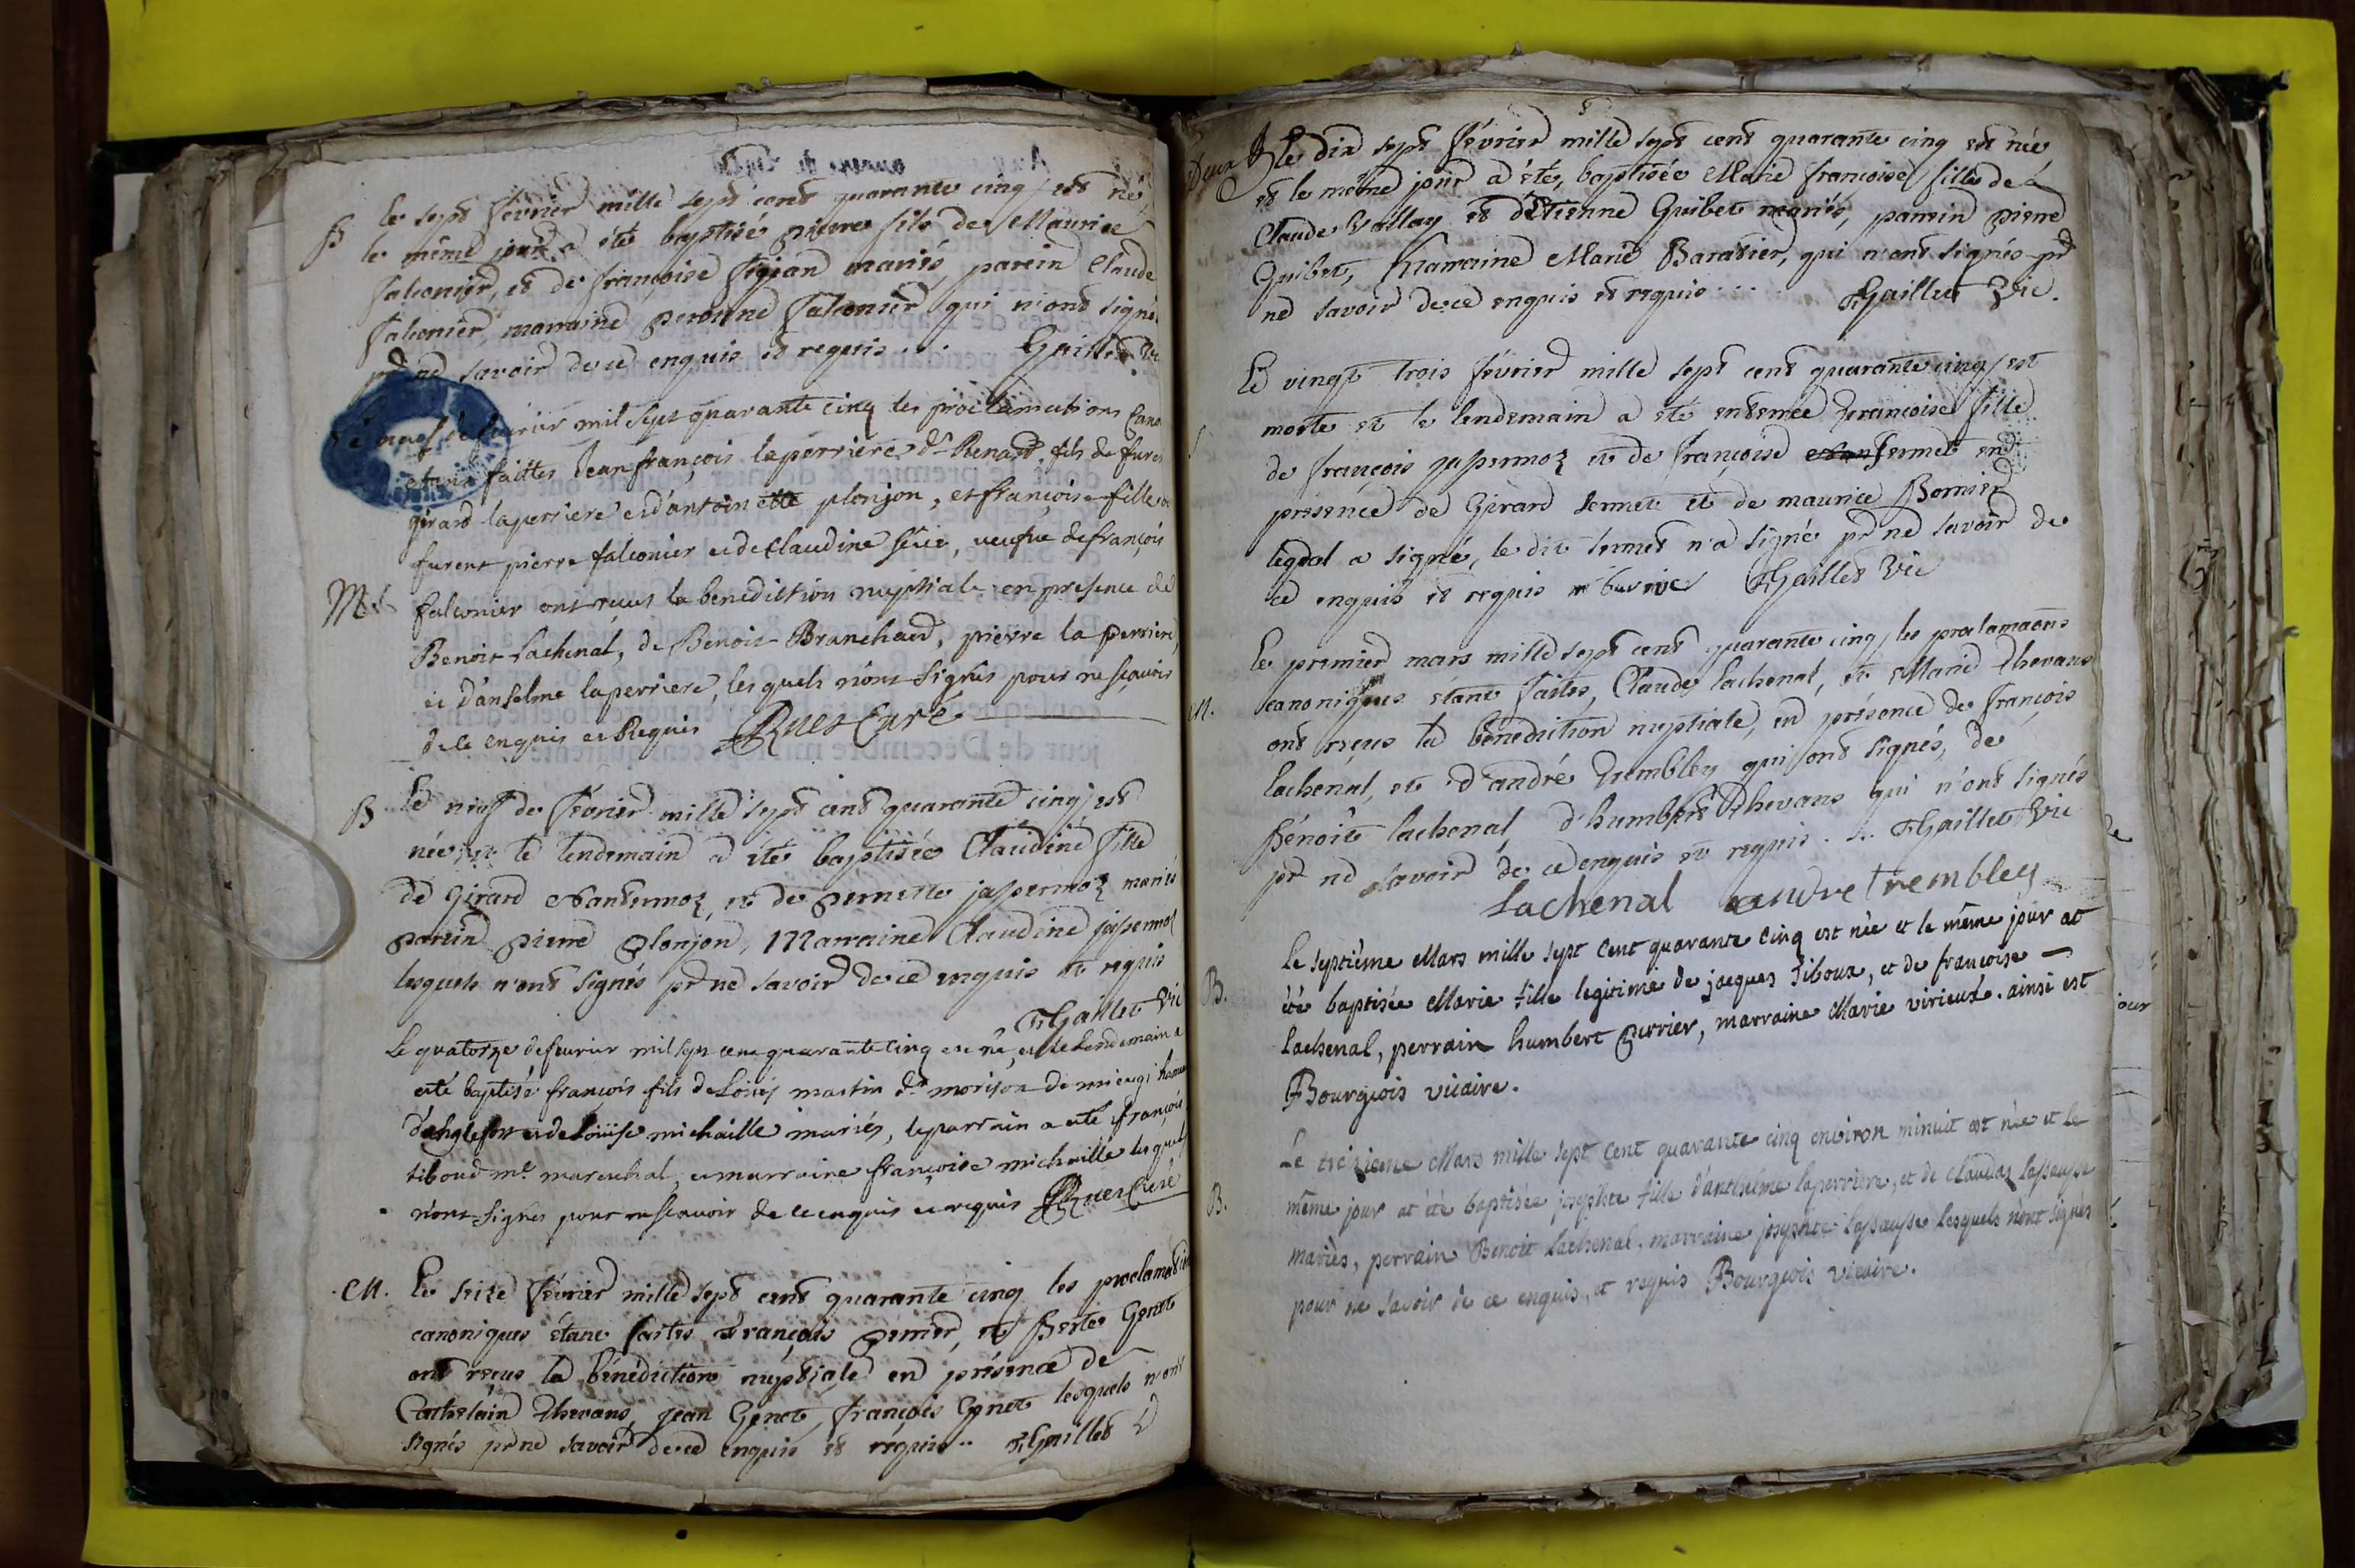 B le sept février mille sept cent quarante cinq est né
le même jour a été baptisé pierre fils de Maurice
falconier, et de françoise sigean mariés, parein Claude
falconier, marraine peronne falconier qui n'ont signé
pr ne savoir de ce enquis et requis ... Gaillet Vic
Le neuf de feurier mil sept quarante cinq les proclamations
etant faittes Jean françois laperriere dt Renard, fils de furent
girard laperriere et d'antoinette plonjon, et françoise fille de
furent pierre falconier et de Claudine , veufve de françois
M. falconier ont reçus la benediction nuptiale en presence de
Benoit Lachenal, de Benoit Branchard, pierre la perriere,
et d'anselme laperriere, les quels n'ont signés pour ne sçavoir
de ce enquis et Requis Ruet Curé
B Le neuf de février mille sept cent quarante cinq est
née, et le lendemain a été baptisée Claudine fille
de Girard Nantermoz, et de pernette jaspermoz mariés
parein pierre plonjon, Marraine Claudine jaspermoz
lesquels n'ont signés pr ne savoir de ce enquis et requis
Gaillet Vic
Le quatorze de feurier mil sept cent quarante cinq est né, et le Lendemain a
eté baptisé françois fils de Loüis martin dt morison de mieugi
d'anglefort et de Loüise michaille mariés, le parrain a eté françois
tiboud me mareschal, et marraine françoise michaille lesquels
n'ont signés pour ne sçavoir de ce enquis et requis Ruet Curé
M. Le seize février mille sept cent quarante cinq les proclamations
canoniques étant faites françois perrier, et Berte Genet
ont reçus la bénédiction nuptiale en présence de
Cathelain Thevans, jean Genet, françois Genet lesquels n'ont
signés pr ne savoir de ce enquis et requis .. Gaillet
B Le dix sept février mille sept cent quarante cinq est née
et le même jour a été, baptisée Marie françoise fille de
Claude Vallay et d'Etienne Guibet mariés, parrein pierre
Guibet, Marraine Marie Baratier, qui n'ont signés pr
ne savoir de ce enquis et requis ... Gaillet Vic.
Le vingt trois février mille sept cent quarante cinq est
morte et le lendemain a été enterrée françoise fille
de françois jaspermoz et de françoise fermet en
presence de Girard fermet et de maurice Bornier
leqval a signé, le dit fermet n'a signé pr ne savoir de
ce enquis et requis Gaillet Vic
Le premier mars mille sept cent quarante cinq, les proclamaons
M. canoniques étant faites, Claude lachenal, et Marie thevans
ont reçus la bénédiction nuptiale, en présence de françois
lachenal, et d'andré trembley qui ont signés, de
Bénoite lachenal, d'humbert thevans qui n'ont signés
pr ne savoir de ce enquis et requis ... Gaillet Vic
Lachenal andre trembley
Le septième Mars mille sept Cent quarante cinq est née et le même jour at
B. été baptisée Marie fille legitime de jacques Tiboux, et de francoise
Lachenal, perrain humbert perrier, marraine Marie virieux. ainsi est
Bourgeois vicaire.
Le treizieme Mars mille sept Cent quarante cinq environ minuit est née et le
B. même jour at été baptisée josephte fille d'anthelme laperriere, et de claudaz lassausse
mariés, perrain Benoit Lachenal, marraine josephte lassausse lesquels n'ont signés
pour ne savoir de ce enquis, et requis Bourgeois vicaire.